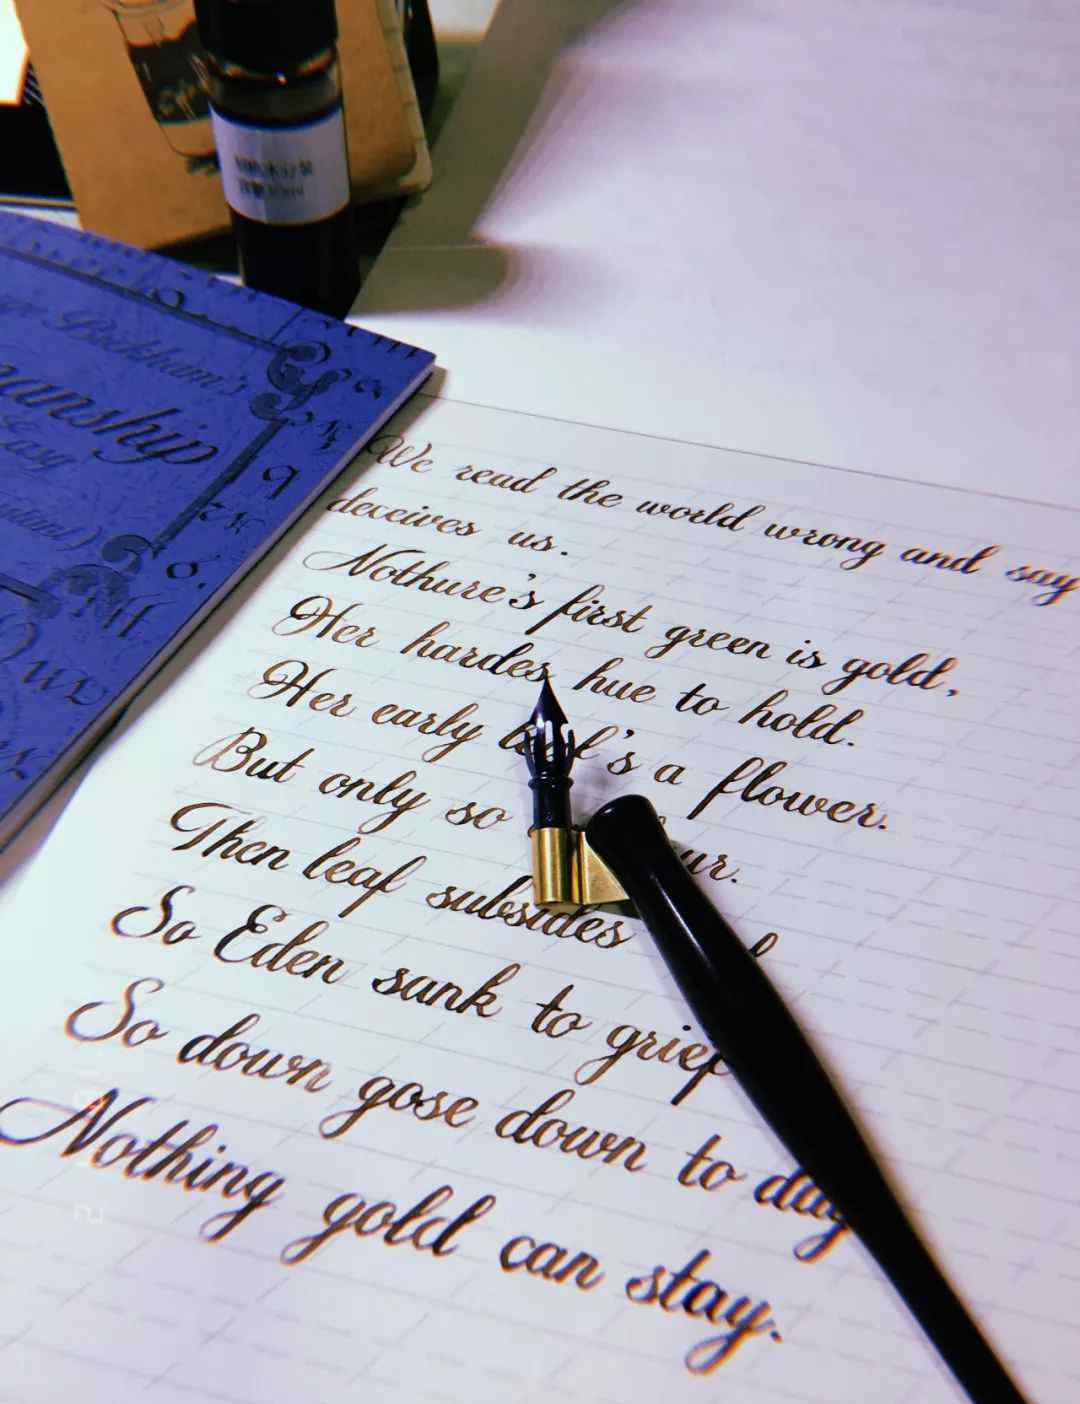 Beckham's
We read the world wrong and say
deceives us.
Nothure's first green is gold,
Her hardes hue to hold.
Her early 's a flower.
But only so
Then leaf subsides
So Eden sank to grief
So down gose down to day
Nothing gold can stay.